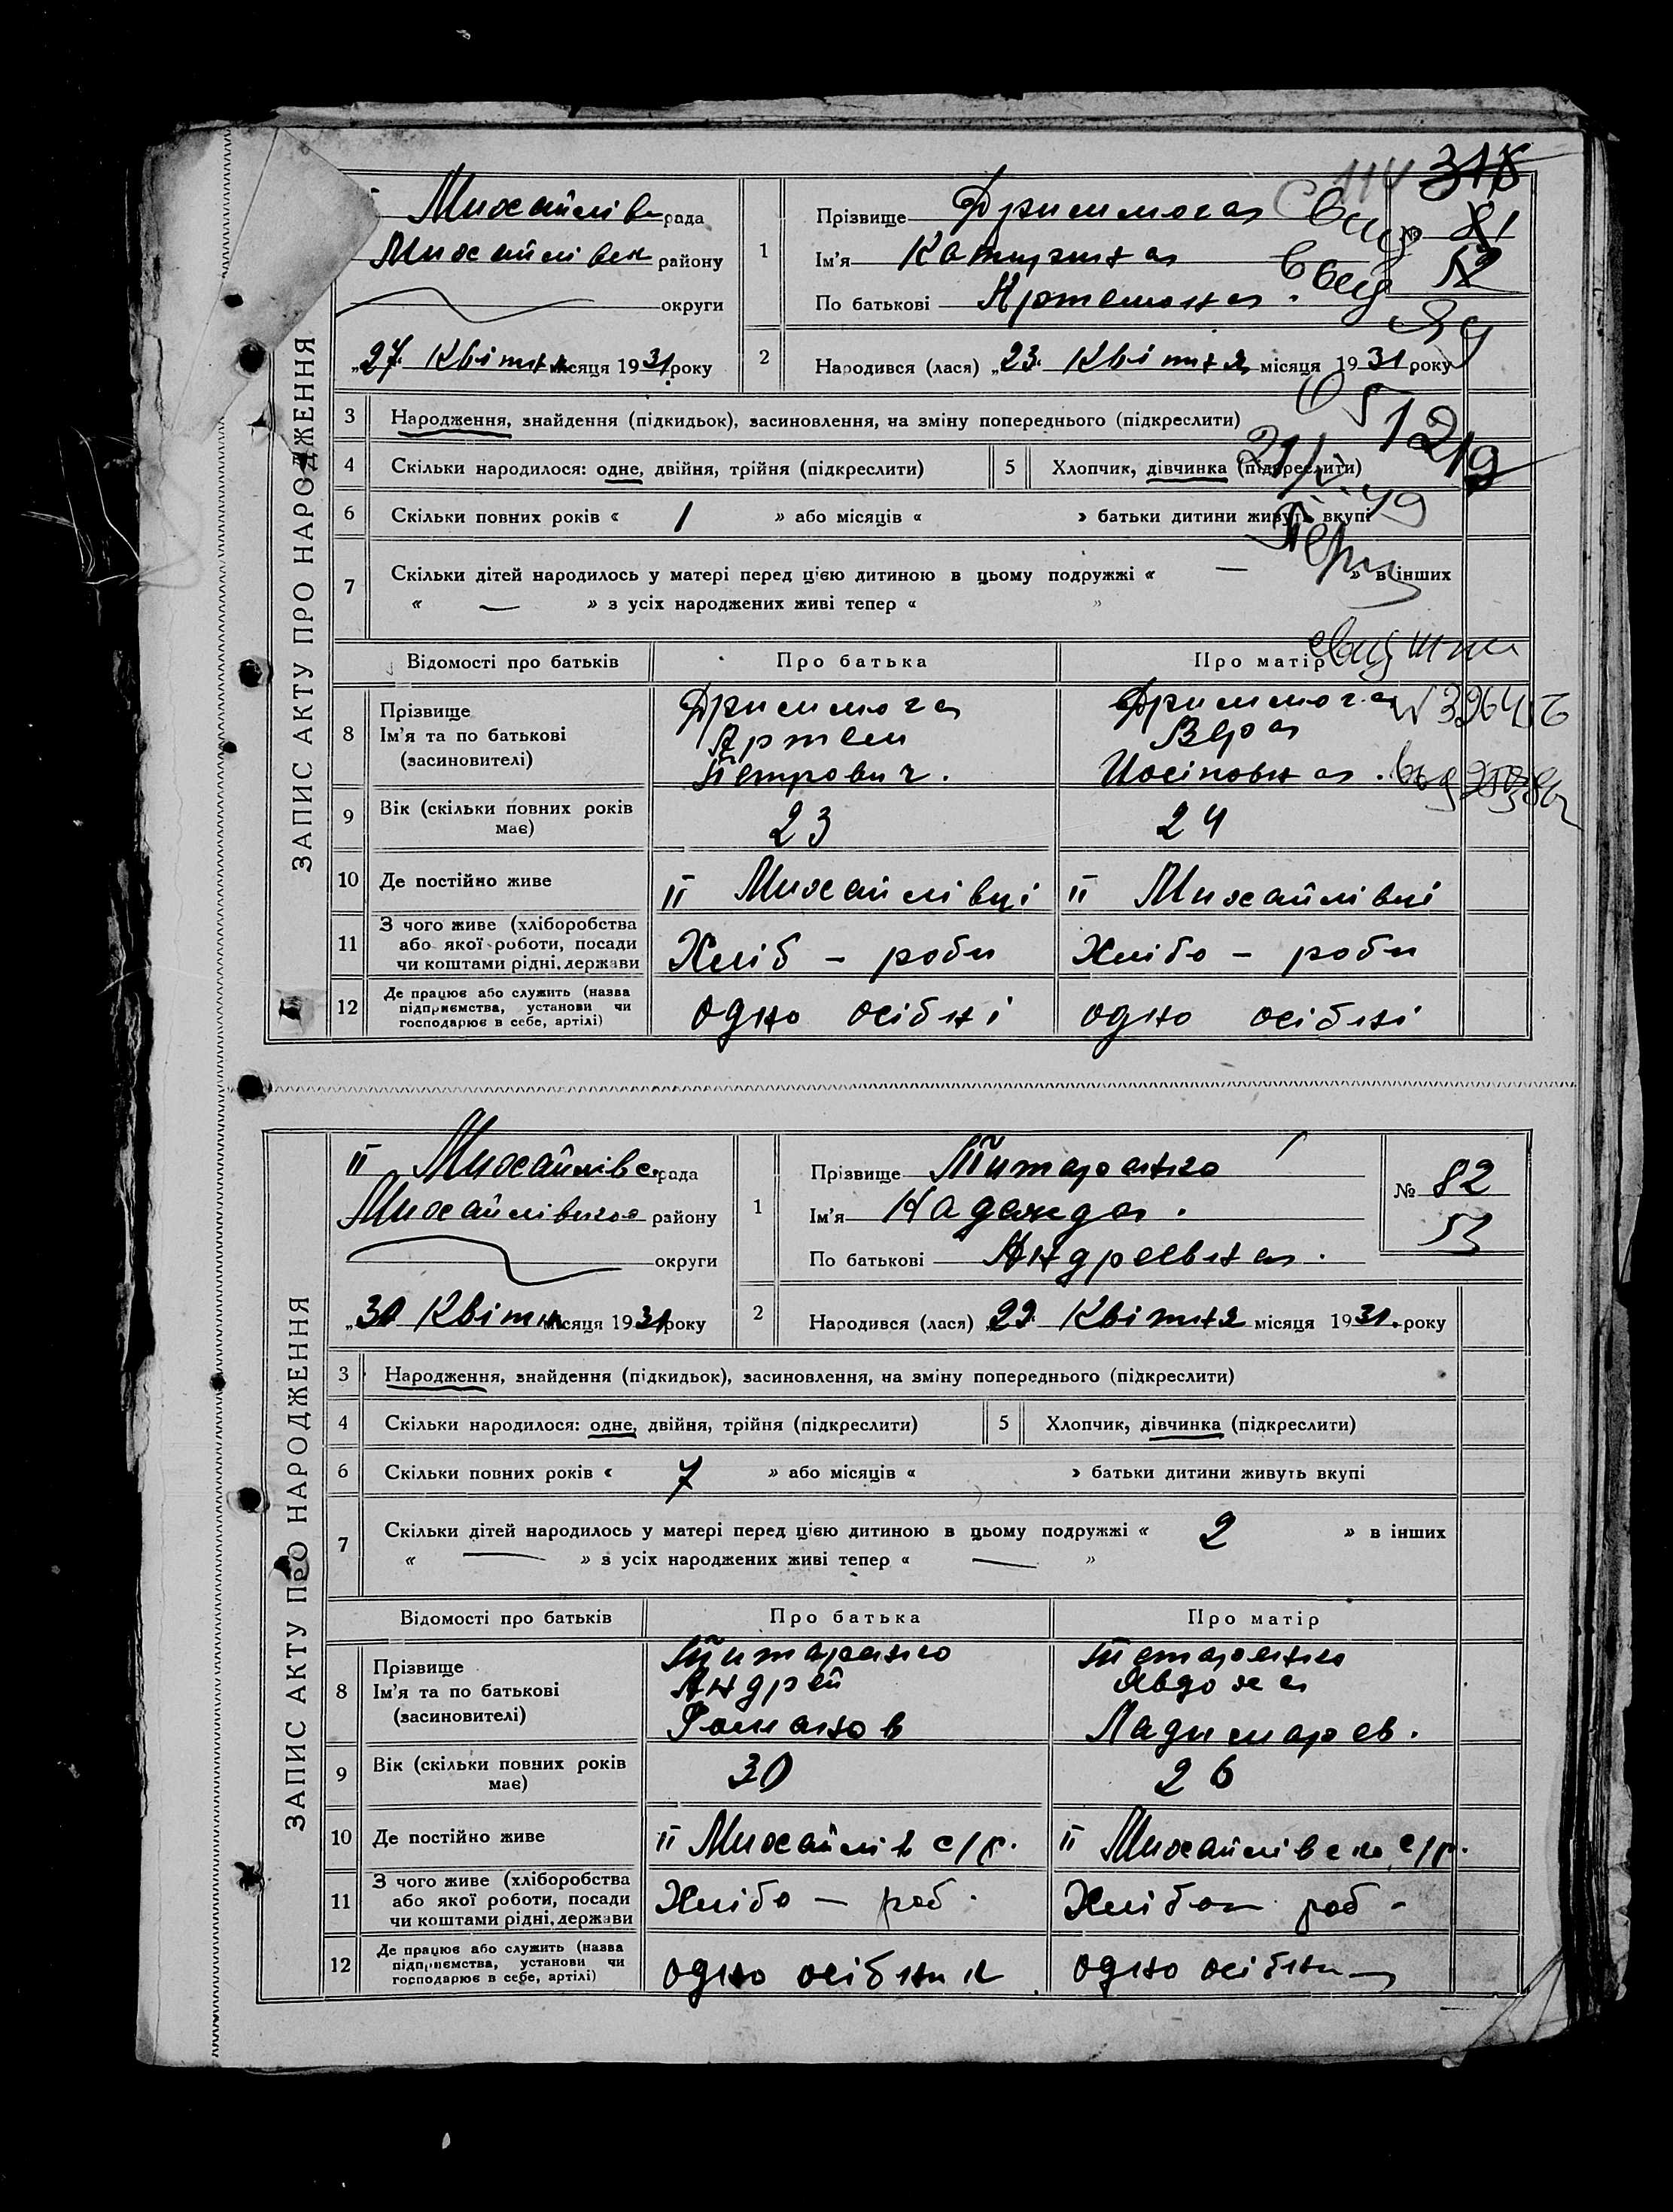 318
114
ЗАПИС АКТУ ПРО НАРОДЖЕННЯ
Михайлів рада
Михайлівск району
округи
„27. Квітня місяця 1931 року
1
Прізвище
Ім’я Катирина
По батькові Артемовна.
№ 81
52
2
Народився (лася) „23. Квітня місяця 1931 року
3 Народження, знайдення (підкидьок), засиновлення, на зміну попереднього (підкреслити)
4 Скільки народилося: одне, двійня, трійня (підкреслити)
5 Хлопчик, дівчинка (підкреслити)
6 Скільки повних років « 1 » або місяців « » батьки дитини живуть вкупі
7 Скільки дітей народилось у матері перед цією дитиною в цьому подружжі « — » в інших
« — » з усіх народжених живі тепер « »
Відомості про батьків Про батька Про матір
8 Прізвище
Ім’я та по батькові Артем Вера
(засновителі) Петрович. Иосіповна.
9 Вік (скільки повних років має) 23 24
10 Де постійно живе II Михайлівці II Михайлівці
11 З чого живе (хліборобства
або якої роботи, посади
чи коштами рідні, держави Хліб - роби Хлібо - роби
12 Де працює або служить (назва
підприємства, установи чи
господарює в себе, артілі) одно осібні одно осібні
ЗАПИС АКТУ ПРО НАРОДЖЕННЯ
II Михайлівс. рада
Михайлівскоє району
округи
„30 Квітн місяця 1931 року
1
Прізвище Титаренко
Ім’я Надежда.
По батькові Андреевна.
№ 82
53
2
Народився (лася) „22. Квітня місяця 1931. року
3 Народження, знайдення (підкидьок), засиновлення, на зміну попереднього (підкреслити)
4 Скільки народилося: одне, двійня, трійня (підкреслити)
5 Хлопчик, дівчинка (підкреслити)
6 Скільки повних років « 7 » або місяців « » батьки дитини живуть вкупі
7 Скільки дітей народилось у матері перед цією дитиною в цьому подружжі « 2 » в інших
« — » з усіх народжених живі тепер « — »
Відомості про батьків Про батька Про матір
8 Прізвище Титаренко Титаренко
Ім’я та по батькові Андрей Явдоха
(засиновителі) Романов Ладимаров.
9 Вік (скільки повних років має) 30 26
10 Де постійно живе II Михайлів с/р. II Михайлівск с/р.
11 З чого живе (хліборобства
або якої роботи, посади
чи коштами рідні, держави Хлібо - роб. Хлібо роб -
12 Де працює або служить (назва
підприємства, установи чи
господарює в себе, артілі) одно осібник одно осібн